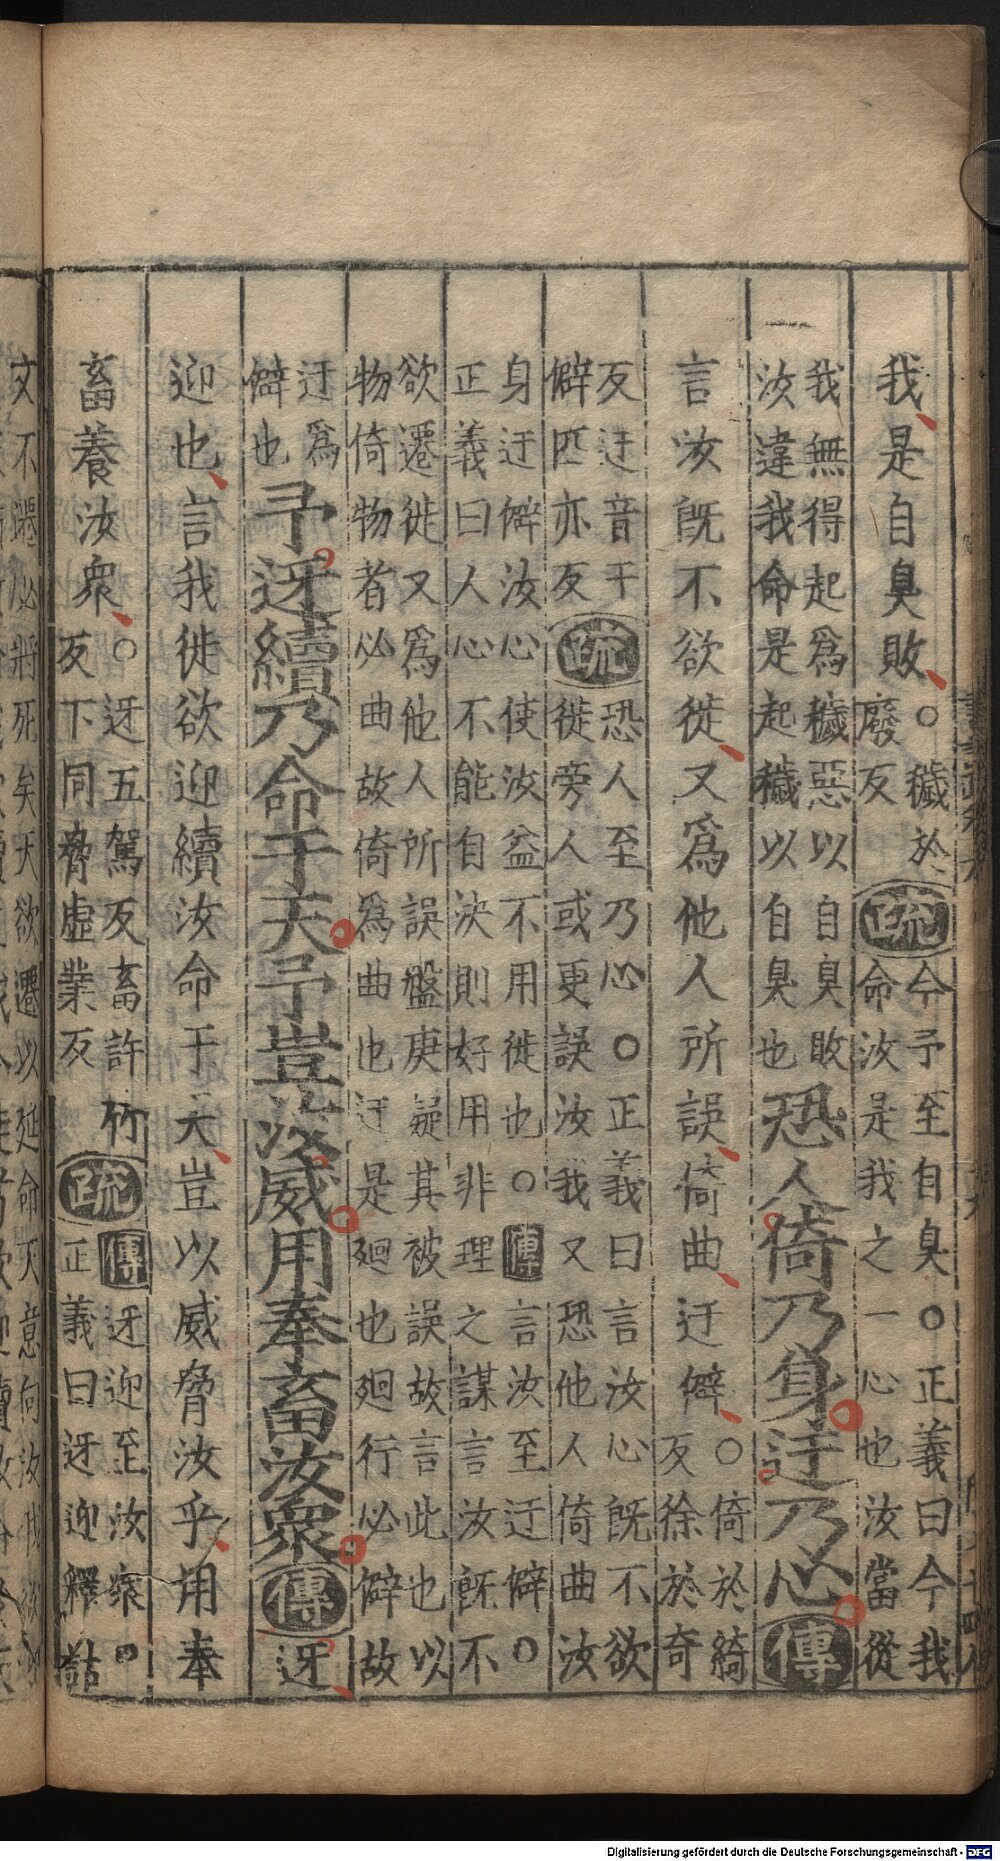 我是自臭敗○穢於
廢反疏今予至自臭○正義曰今我
命汝是我之一心也汝當從
我無得起爲穢惡以自臭敗
汝違我命是起穢以自臭也恐人倚乃身迂乃心傳
言汝既不欲徙又爲他人所誤倚曲迂僻○倚於綺
反徐於奇
反迂音于
僻匹亦反疏恐人至乃心○正義曰言汝心既不欲
徙旁人或更誤汝我又恐他人倚曲汝
身迂僻汝心使汝益不用徙也○傳言汝至迂僻○
正義曰人心不能自決則好用非理之謀言汝既不
欲遷徙又爲他人所誤盤庚疑其被誤故言此也以
物倚物者必曲故倚爲曲也迂是廻也廻行必僻故
迂爲
僻也予迓續乃命于天予豈汝威用奉畜汝衆傳迓
迎也言我徙欲迎續汝命于天豈以威脅汝乎用奉
畜養汝衆○迓五駕反畜許竹
反下同脅虛業反疏傳迓迎至汝衆○
正義曰迓迎釋詁
文不遷必將死矣天欲遷以延命天意向汝
Digitalisierung gefördert durch die Deutsche Forschungsgemeinschaft - DFG